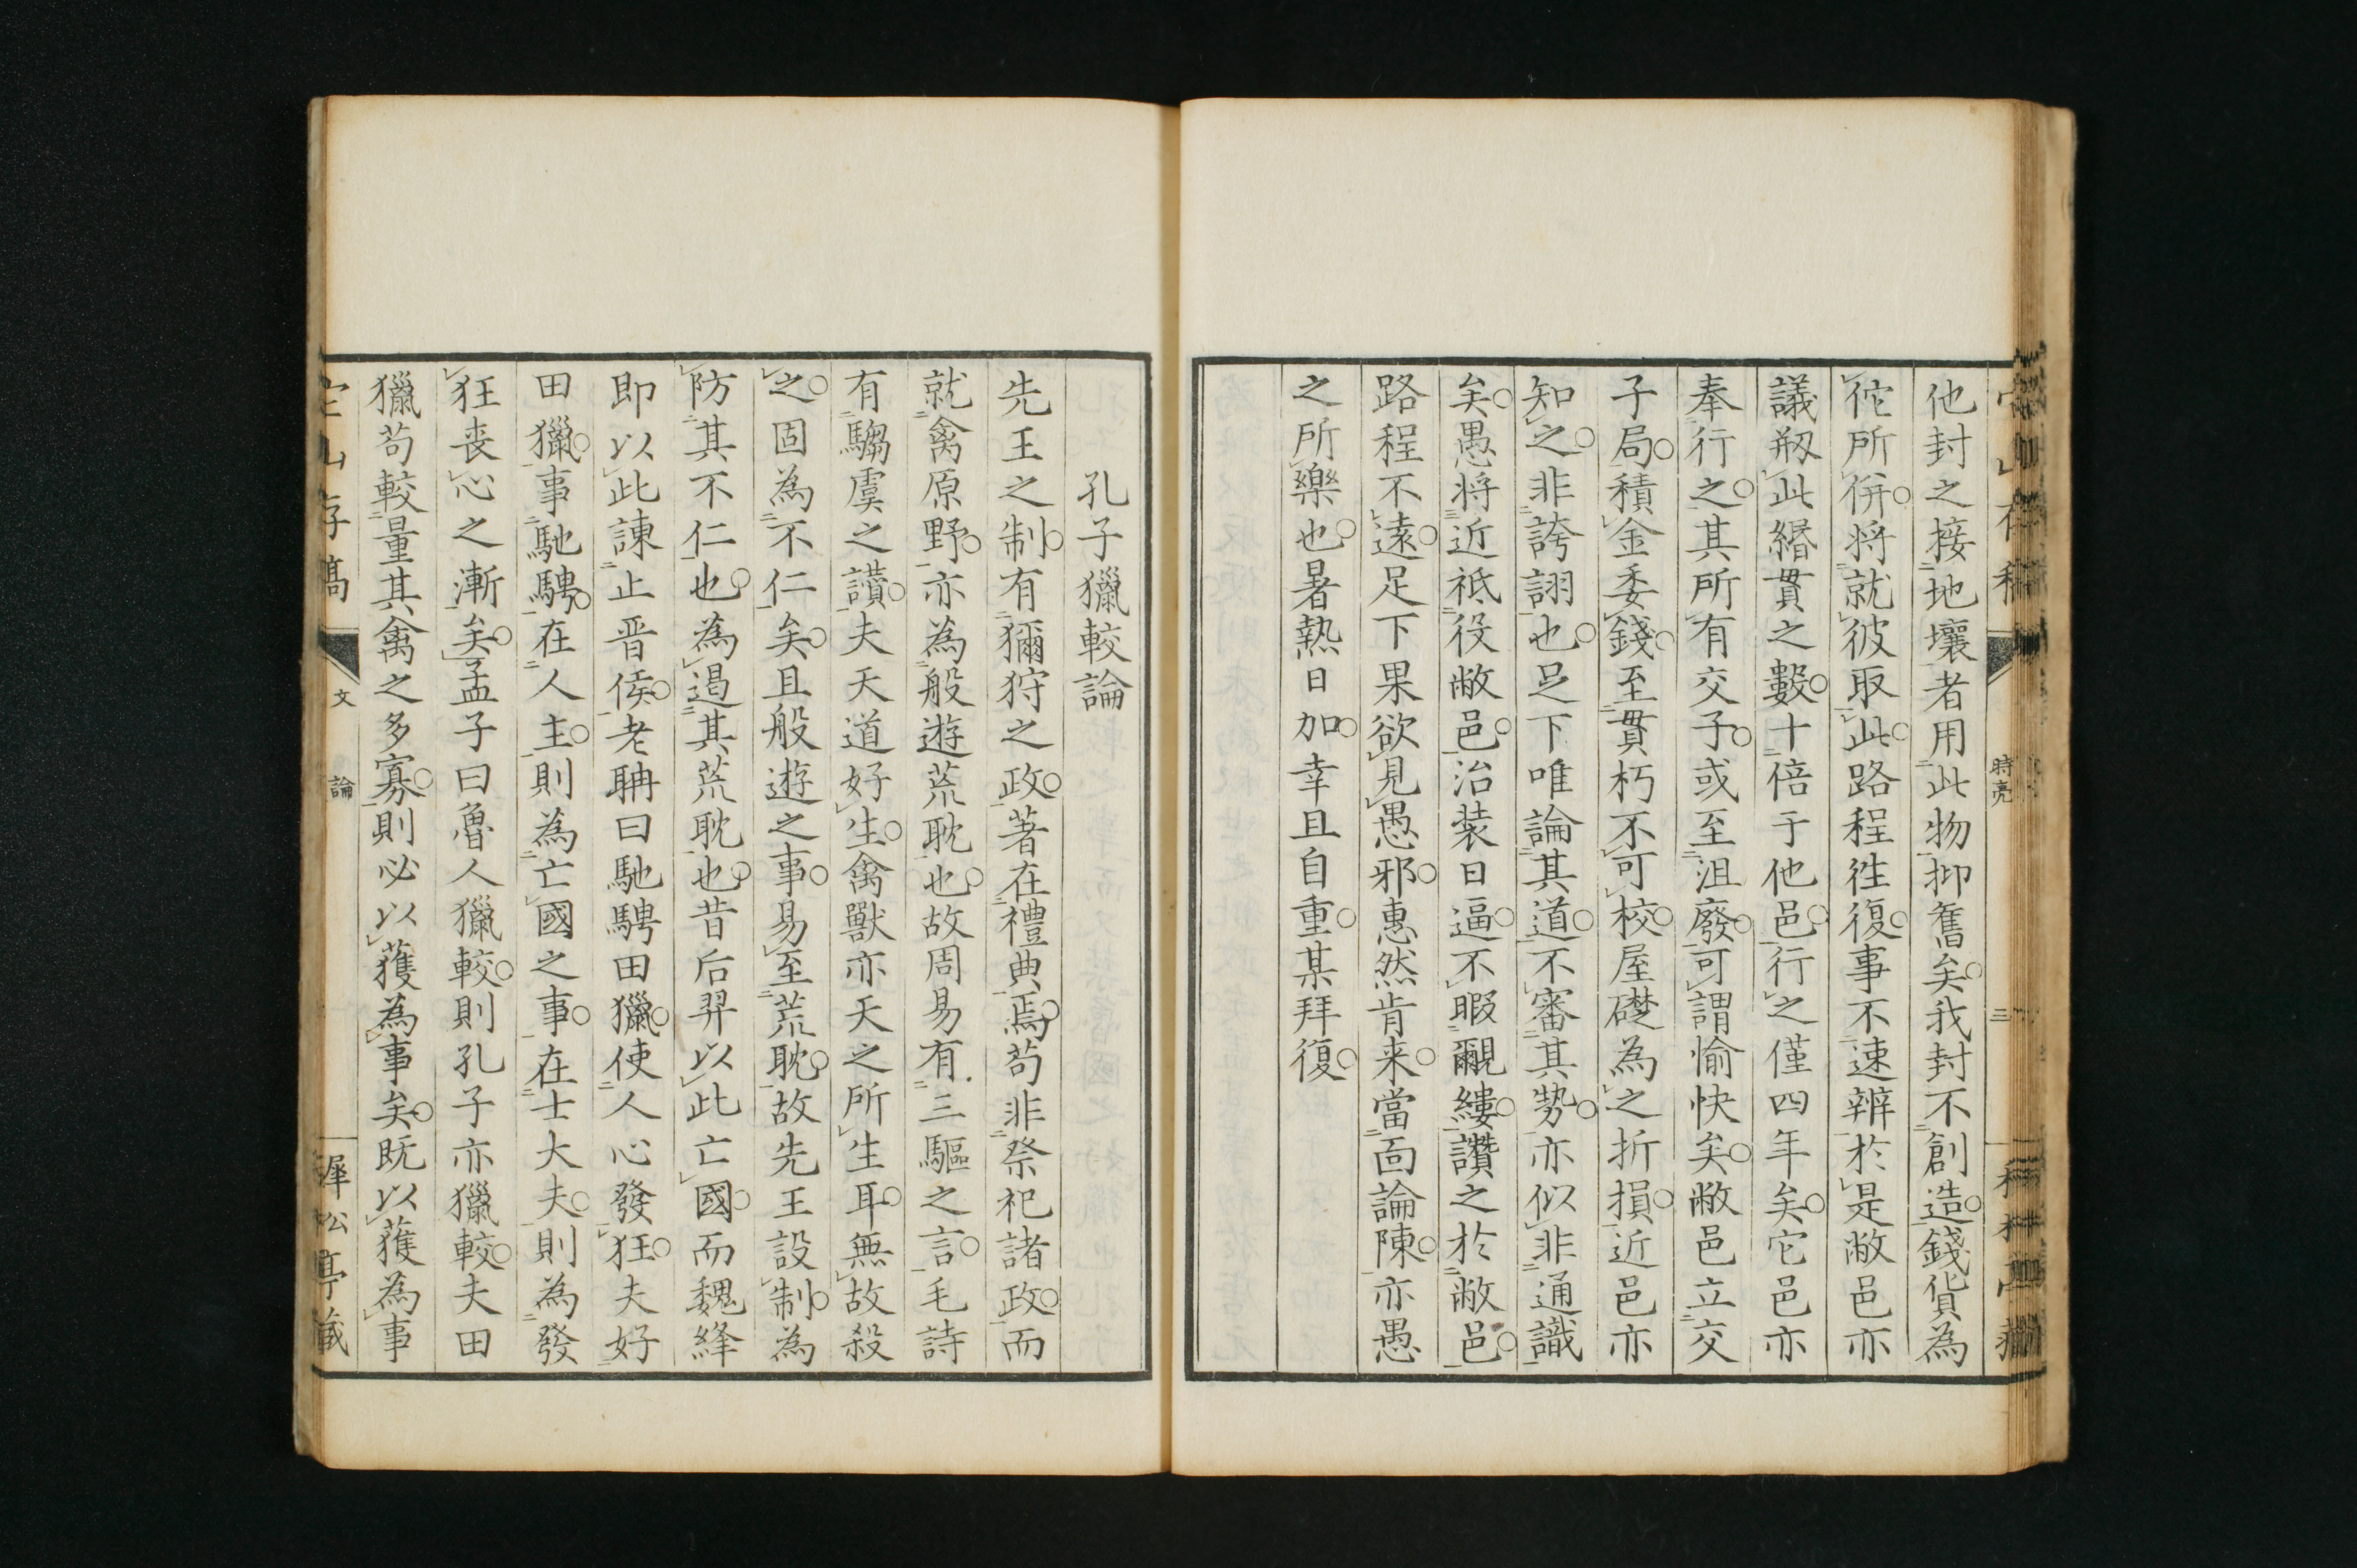 他封之接地壤者用此物抑舊矣我封不創造錢貨為
佗所併將就彼取此路程往復事不速辨於是敝邑亦
議刱此緡貫之數十倍于他邑行之僅四年矣它邑亦
奉行之其所有交子或至沮廢可謂愉快矣敝邑立交
子局積金委錢至貫朽不可校屋礎為之折損近邑亦
知之非誇詡也足下唯論其道不審其勢亦似非通識
矣愚將近祗役敝邑治装日逼不暇覼縷讚之於敝邑
路程不遠足下果欲見愚邪惠然肯来當面論陳亦愚
之所樂也暑熱日加幸且自重某拜復
時亮
三
孔子獵較論
先王之制有獮狩之政著在禮典焉苟非祭祀諸政而
就禽原野亦為般遊荒耽也故周易有三驅之言毛詩
有騶虞之讚夫天道好生禽獸亦天之所生耳無故殺
之固為不仁矣且般遊之事易至荒耽故先王設制為
防其不仁也為遏其荒耽也昔后羿以此亡國而魏絳
即以此諫止晋侯老聃曰馳騁田獵使人心發狂夫好
田獵事馳騁在人主則為亡國之事在士大夫則為發
狂喪心之漸矣孟子曰魯人獵較則孔子亦獵較夫田
獵苟較量其禽之多寡則必以獲為事矣既以獲為事
山存稿
文
論
犀松亭藏